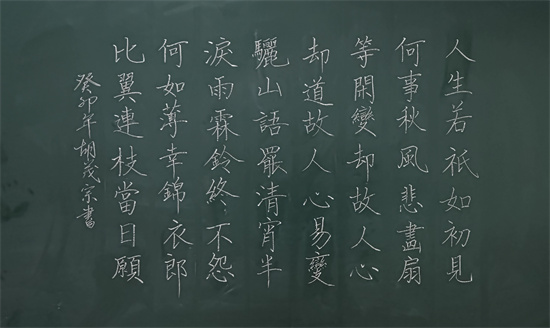 人生若祗如初見
何事秋風悲畫扇
等閑變却故人心
却道故人心易變
驪山語罷清宵半
淚雨霖鈴終不怨
何如薄幸錦衣郎
比翼連枝當日願
癸卯年胡茂宗書